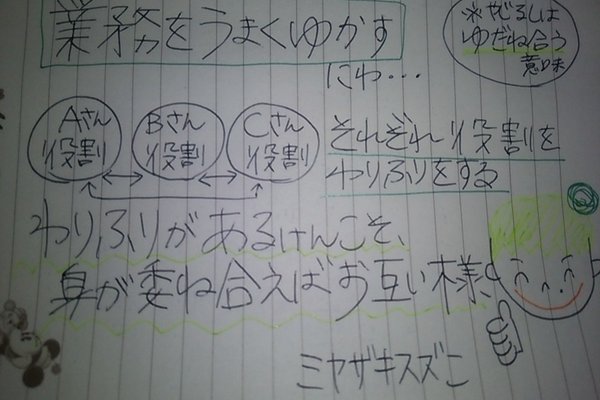 業務をうまくゆかす
にわ…
※やじるしは
ゆだね合う
意味
Aさん
役割
Bさん
役割
Cさん
役割
それぞれ役割を
わりふりをする
わりふりがあるけんこそ、
身が委ね合えばお互い様、
ミヤザキスズこ